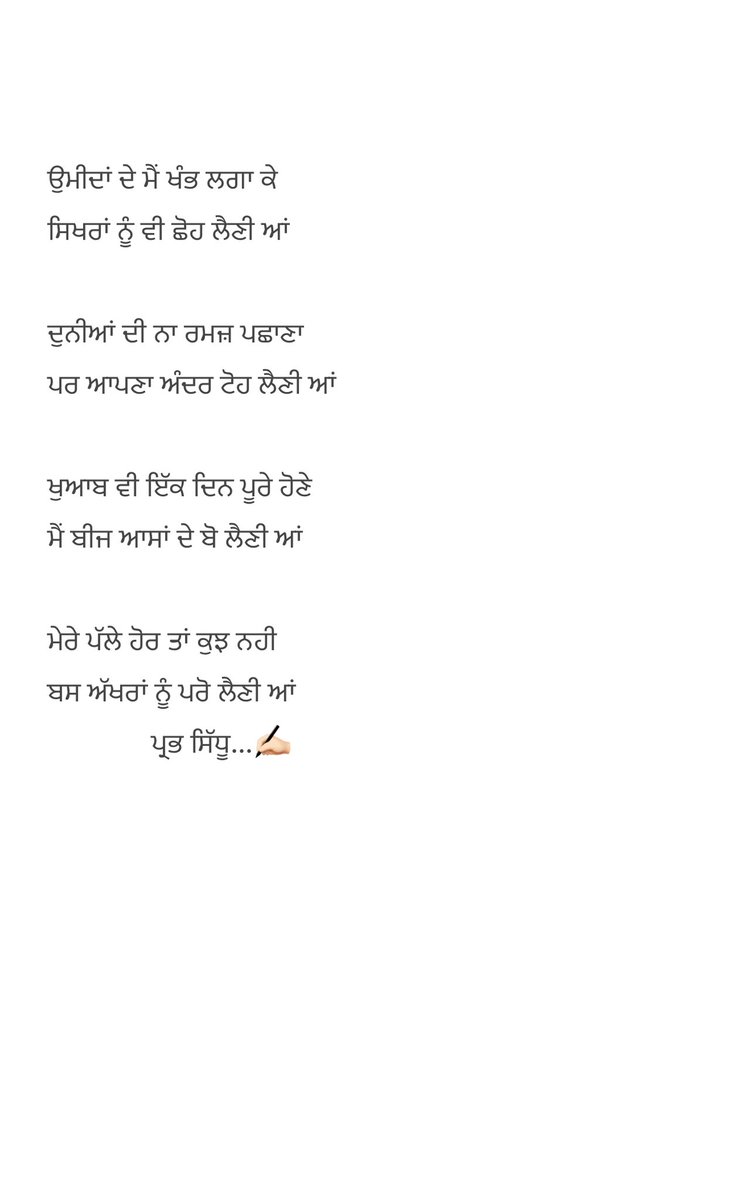 ਉਮੀਦਾਂ ਦੇ ਮੈਂ ਖੰਭ ਲਗਾ ਕੇ
ਸਿਖਰਾਂ ਨੂੰ ਵੀ ਛੋਹ ਲੈਣੀ ਆਂ
ਦੁਨੀਆਂ ਦੀ ਨਾ ਰਮਜ਼ ਪਛਾਣਾ
ਪਰ ਆਪਣਾ ਅੰਦਰ ਟੋਹ ਲੈਣੀ ਆਂ
ਖੁਆਬ ਵੀ ਇੱਕ ਦਿਨ ਪੂਰੇ ਹੋਣੇ
ਮੈਂ ਬੀਜ ਆਸਾਂ ਦੇ ਬੋ ਲੈਣੀ ਆਂ
ਮੇਰੇ ਪੱਲੇ ਹੋਰ ਤਾਂ ਕੁਝ ਨਹੀ
ਬਸ ਅੱਖਰਾਂ ਨੂੰ ਪਰੋ ਲੈਣੀ ਆਂ
ਪ੍ਰਭ ਸਿੱਧੂ...✍🏻